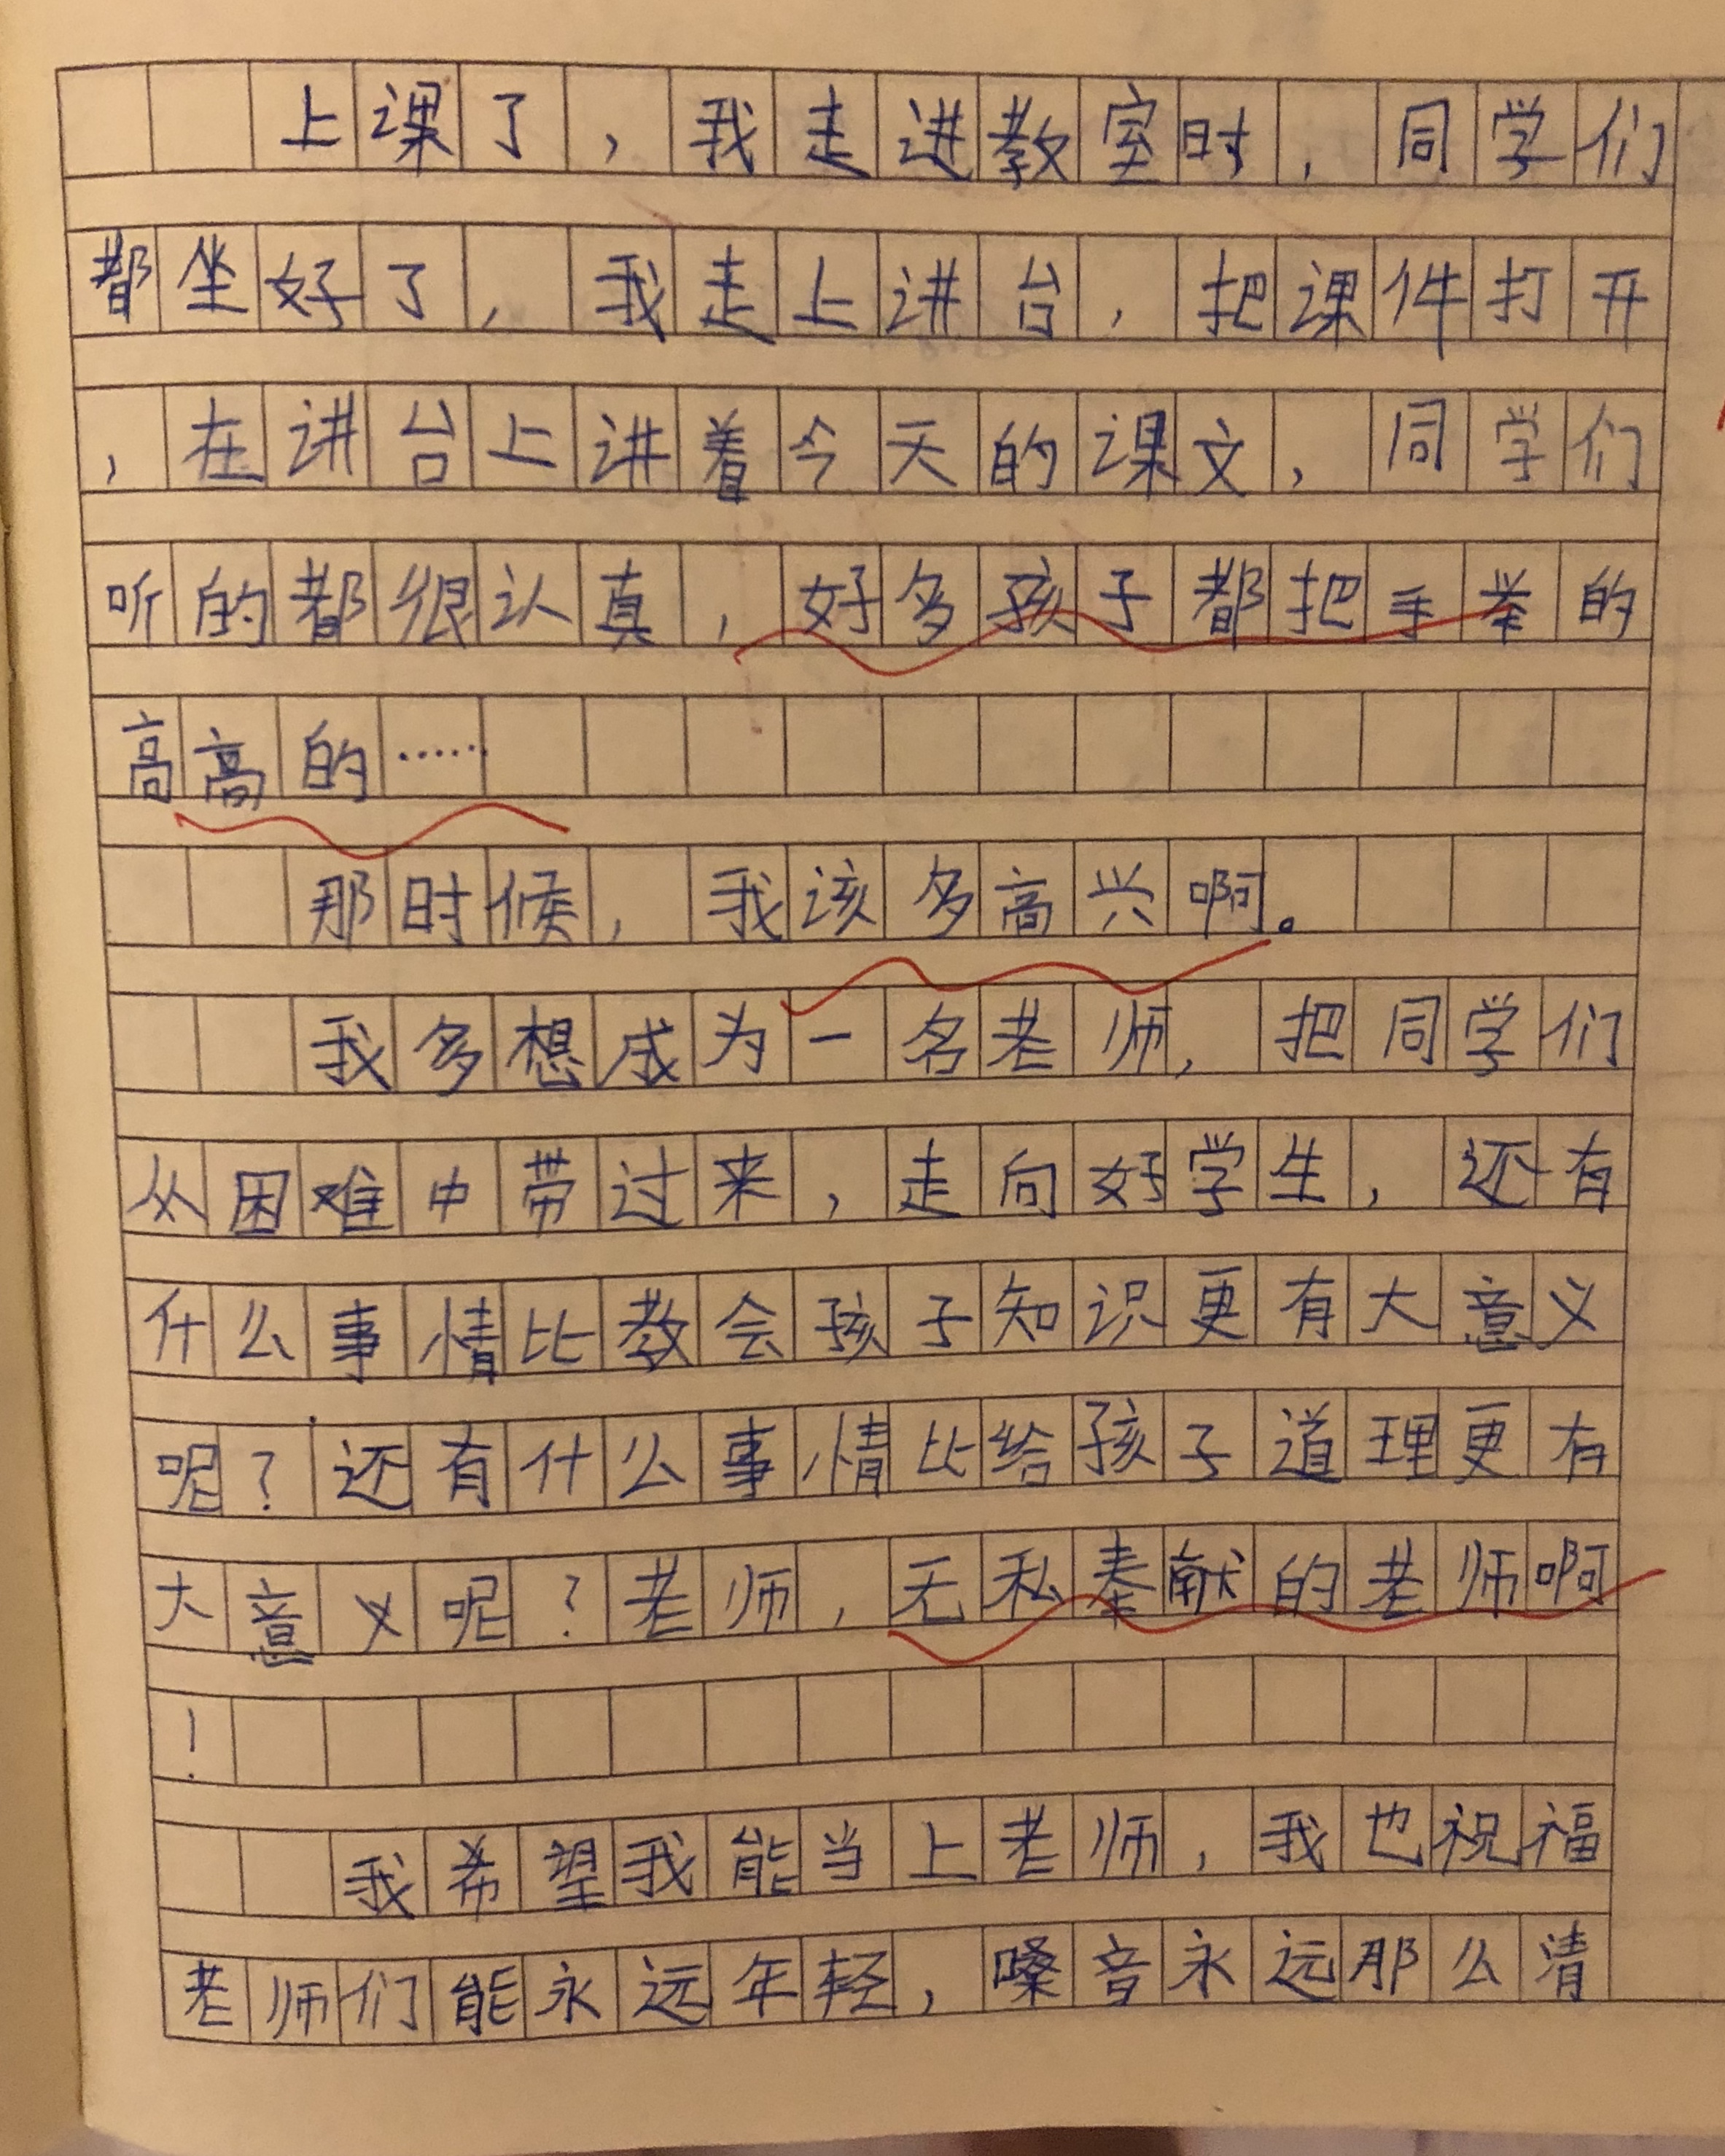 上课了，我走进教室时，同学们
都坐好了，我走上讲台，把课件打开
，在讲台上讲着今天的课文，同学们
听的都很认真，好多孩子都把手举的
高高的……
那时候，我该多高兴啊。
我多想成为一名老师，把同学们
从困难中带过来，走向好学生，还有
什么事情比教会孩子知识更有大意义
呢？还有什么事情比给孩子道理更有
大意义呢？老师，无私奉献的老师啊
！
我希望我能当上老师，我也祝福
老师们能永远年轻，嗓音永远那么清